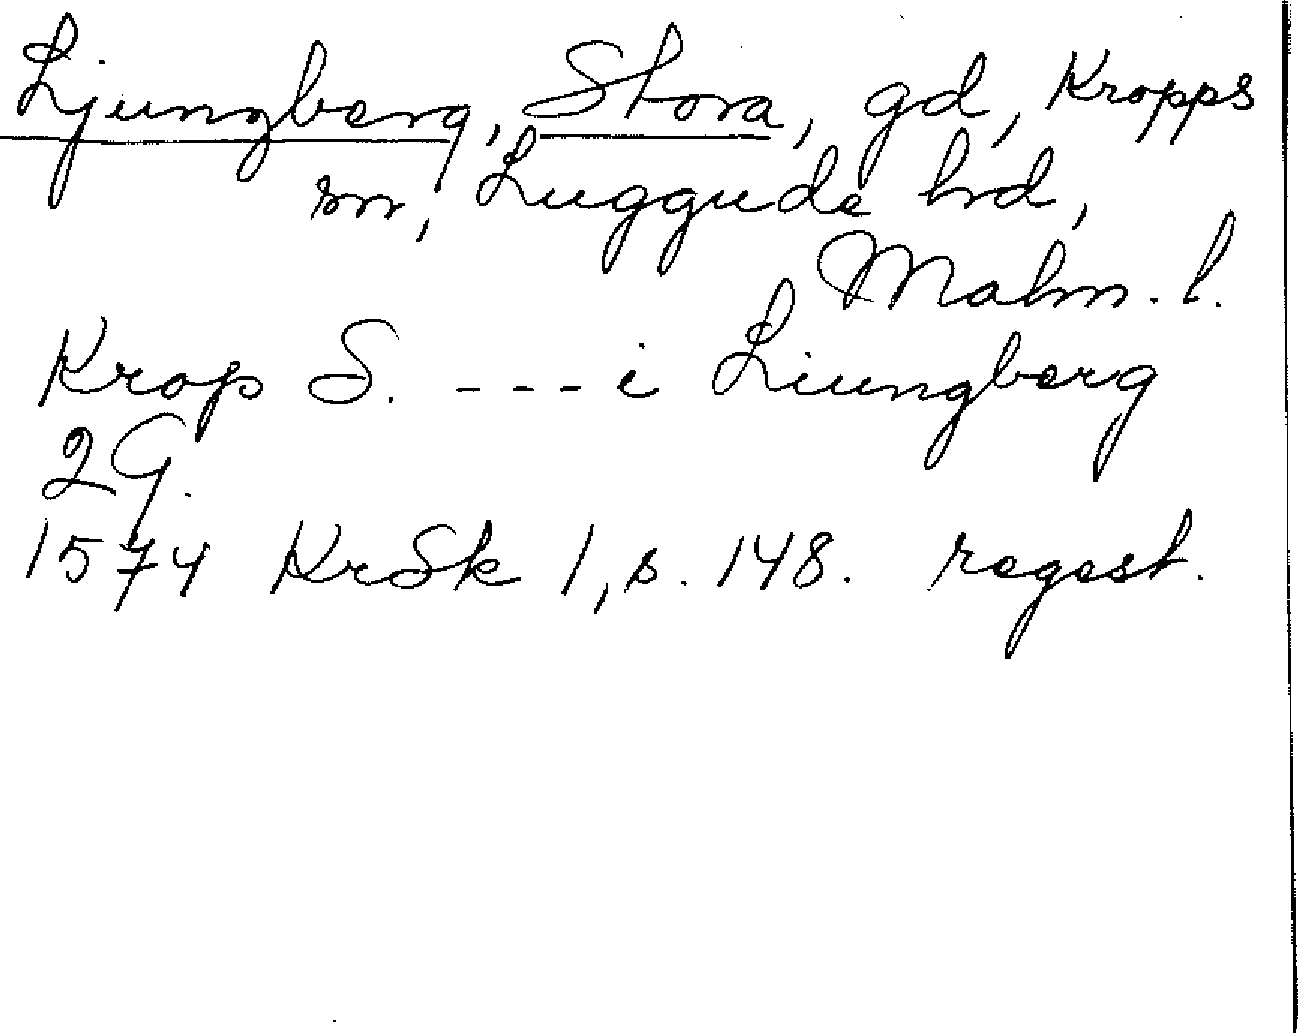 Ljungberg, Stora, gd, Kropps
sn, Luggude hd,
Malm. l.
Krop S. --- i Liungberg
2 G.
1574 KrSk 1, s. 148. regest.